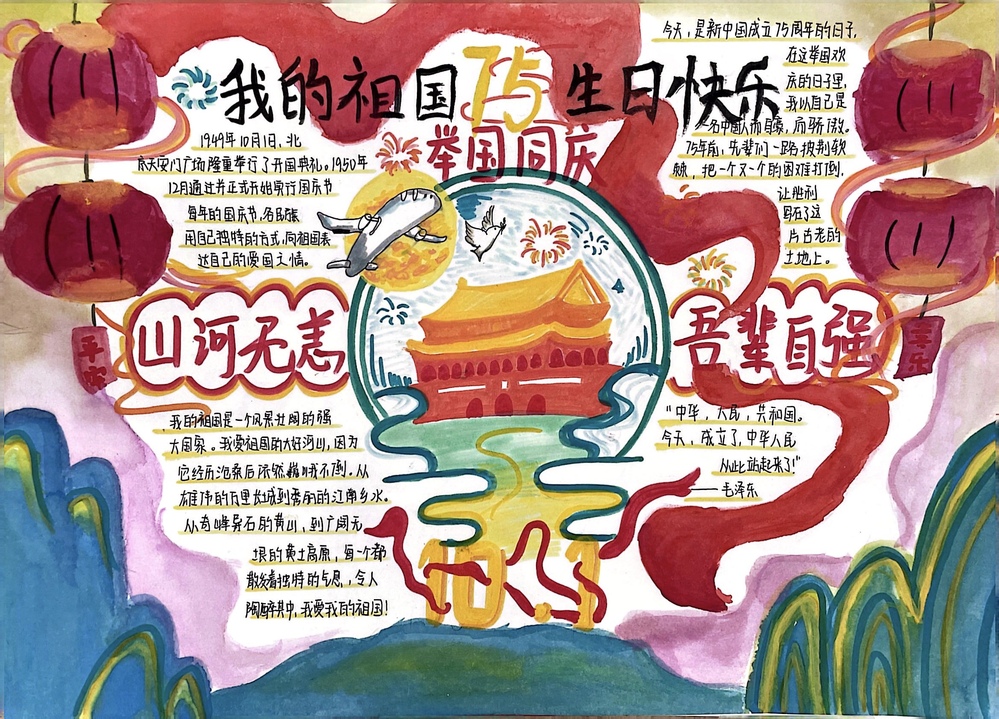 我的祖国75生日快乐
举国同庆
1949年10月1日、北
京天安门广场隆重举行了开国典礼。1950年
12月通过并正式开始实行国庆节
每年的国庆节,各民族
用自己独特的方式,向祖国表
达自己的爱国之情。
今天,是新中国成立75周年的日子,
在这举国欢
庆的日子里,
我以自己是
一名中国人而自豪,而骄傲。
75年前,先辈们一路披荆
棘,把一个又一个的困难打倒,
让胜利
这
片古老的
土地上。
山河无恙
吾辈自强
平
乐
我的祖国是一个风景壮阔的强
大国家。我爱祖国的大好河山,因为
它经历沧桑后依然巍峨不倒。从
雄伟的万里长城到秀丽的江南乡水。
从奇峰异石的黄山,到广阔无
垠的黄土高原,每一个都
散发着独特的气息,令人
陶醉其中,我爱我的祖国!
"中华,人民,共和国。
今天,成立了,中华人民
从此站起来了!"
——毛泽东
10.1